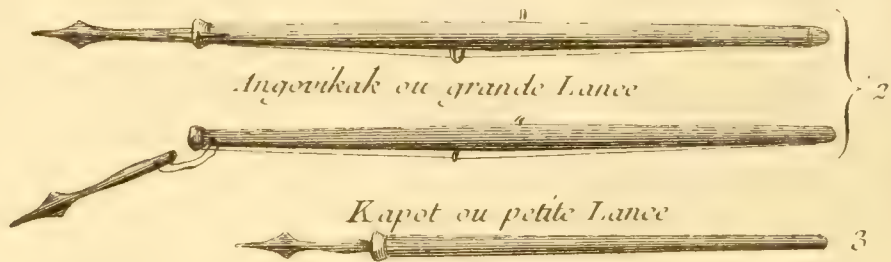 Angovikak ou grande Lance
2
Kapot ou petite Lance
3